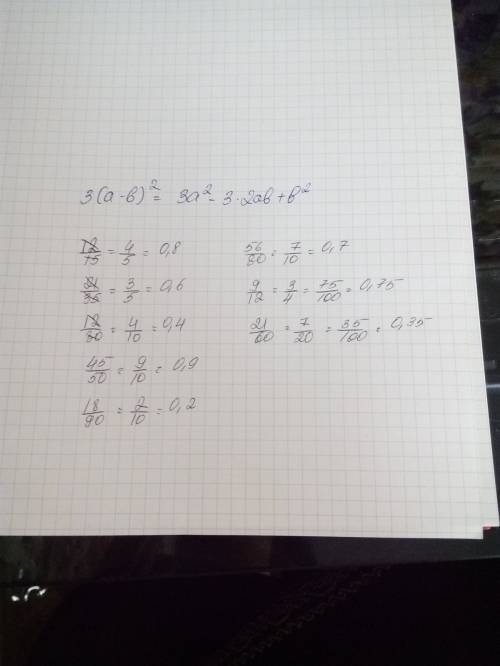 3(a-b)² = 3a² - 3·2ab + b²
12/15 = 4/5 = 0,8
21/35 = 3/5 = 0,6
12/30 = 4/10 = 0,4
45/50 = 9/10 = 0,9
18/90 = 2/10 = 0,2
56/80 = 7/10 = 0,7
9/12 = 3/4 = 75/100 = 0,75
21/60 = 7/20 = 35/100 = 0,35